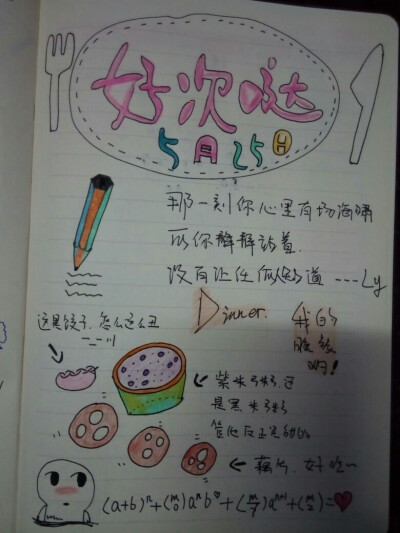 好次哒
5月25日
那一刻你心里有场海啸
可你静静站着.
没有让任何人知道 ---Ly
Dinner.
我的
晚餐
啊!
这是饺子.怎么这么丑
紫米粥还
是黑米粥
管他反正是甜的
藕片,好吃~
(a+b)ⁿ+(m 0)aⁿb+(m 7)aⁿ⁺¹+(m 2)=